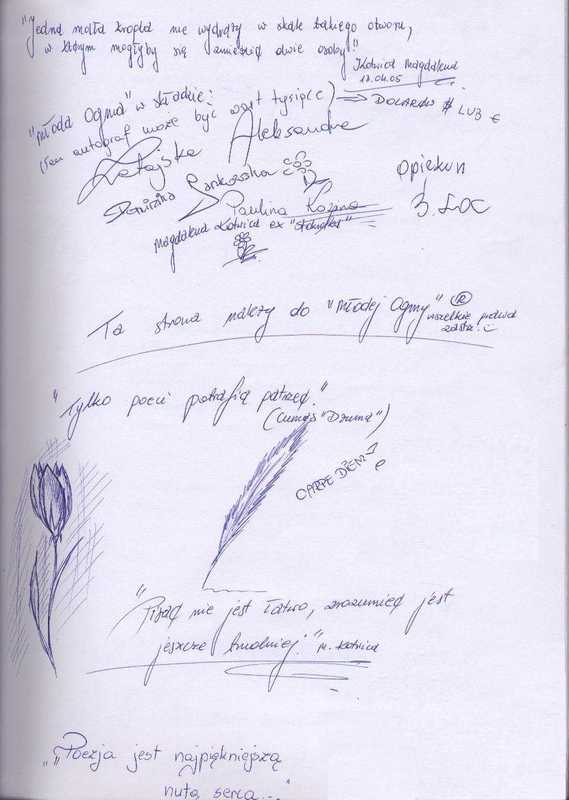 "Jedna mała kropla nie wydrąży w skale takiego otworu,
w którym mogłyby się zmieścić dwie osoby!"
Kotwica Magdalena
17.04.05
"Młoda Ogma" w składzie:
(ten autograf może być wart tysiące) ⇒ DOLARÓW $ LUB €
Aleksandra
Ratajska
Paulina
Magdalena Kotwica ex
Opiekun
Ta strona należy do "Młodej Ogmy" ®
wszelkie prawa
"Tylko poeci potrafią patrzeć."
(Camus "Dżuma")
CARPE DIEM
"Pisać nie jest łatwo, zrozumieć jest
jeszcze trudniej." M. Kotwica
"Poezja jest najpiękniejszą
nutą serca..."